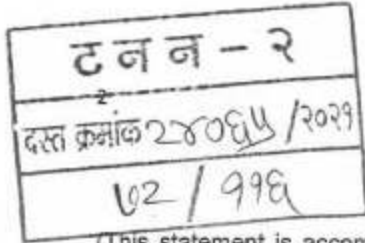 ट न न - २
2
दस्त क्रमांक २४०६५ /२०२१
७२ / ११६
This statement is accom